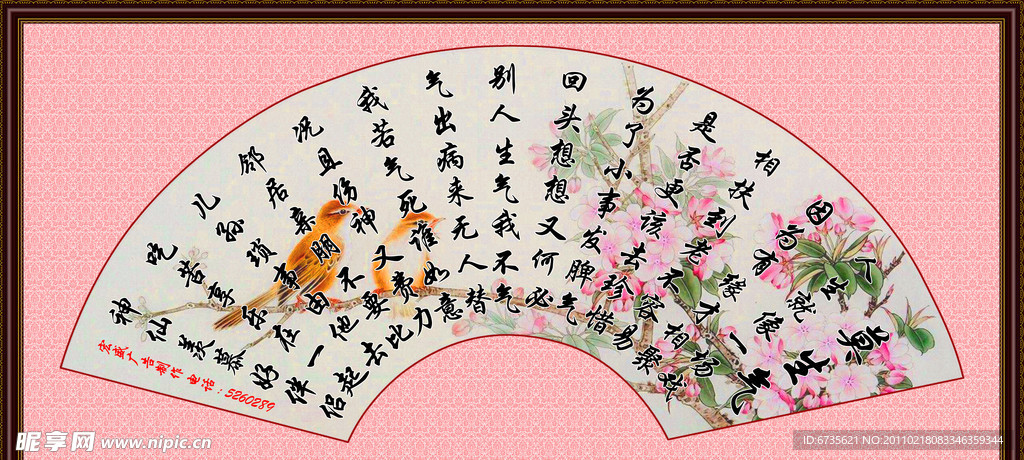 莫生气
人生就像一场戏
因为有缘才相聚
相扶到老不容易
是否更该去珍惜
为了小事发脾气
回头想想又何必
别人生气我不气
气出病来无人替
我若气死谁如意
况且伤神又费力
邻居亲朋不要比
儿孙琐事由他去
吃苦享乐在一起
神仙羡慕好伴侣
广告制作 电话：5260289
昵享网 www.nipic.cn
ID:6735621 NO:20110218083346359344